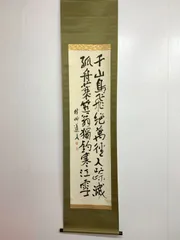 千山鳥飛絶萬徑人蹤滅
孤舟蓑笠翁獨釣寒江雪